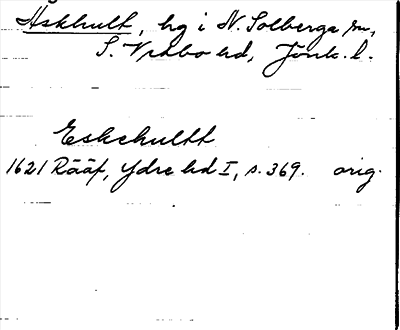 Askhult, hg i N. Solberga sn,
S. Vedbo hd, Jönk. l.
Eskehultt
1621 Rääf, Ydre hd I, s. 369. orig.